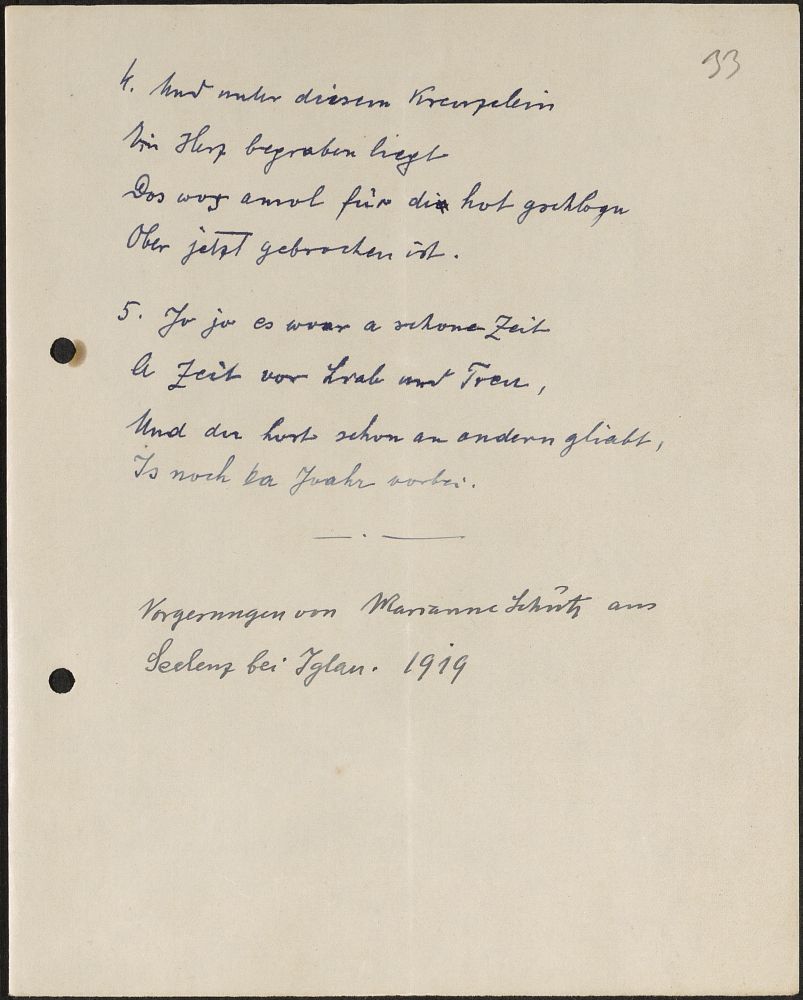 33
4. Und unter diesem Kreuzelein
Ein Herz begraben liegt
Dos wos amol für di hot gschlogn
Ober jetzt gebrochen ist.
5. Jo jo es woar a schone Zeit
A Zeit vor Liab und Treu,
Und du host schon an andern gliabt,
Is noch ka Joahr vorbei.
Vorgesungen von Marianne Schütz aus
Seelenz bei Iglau. 1919